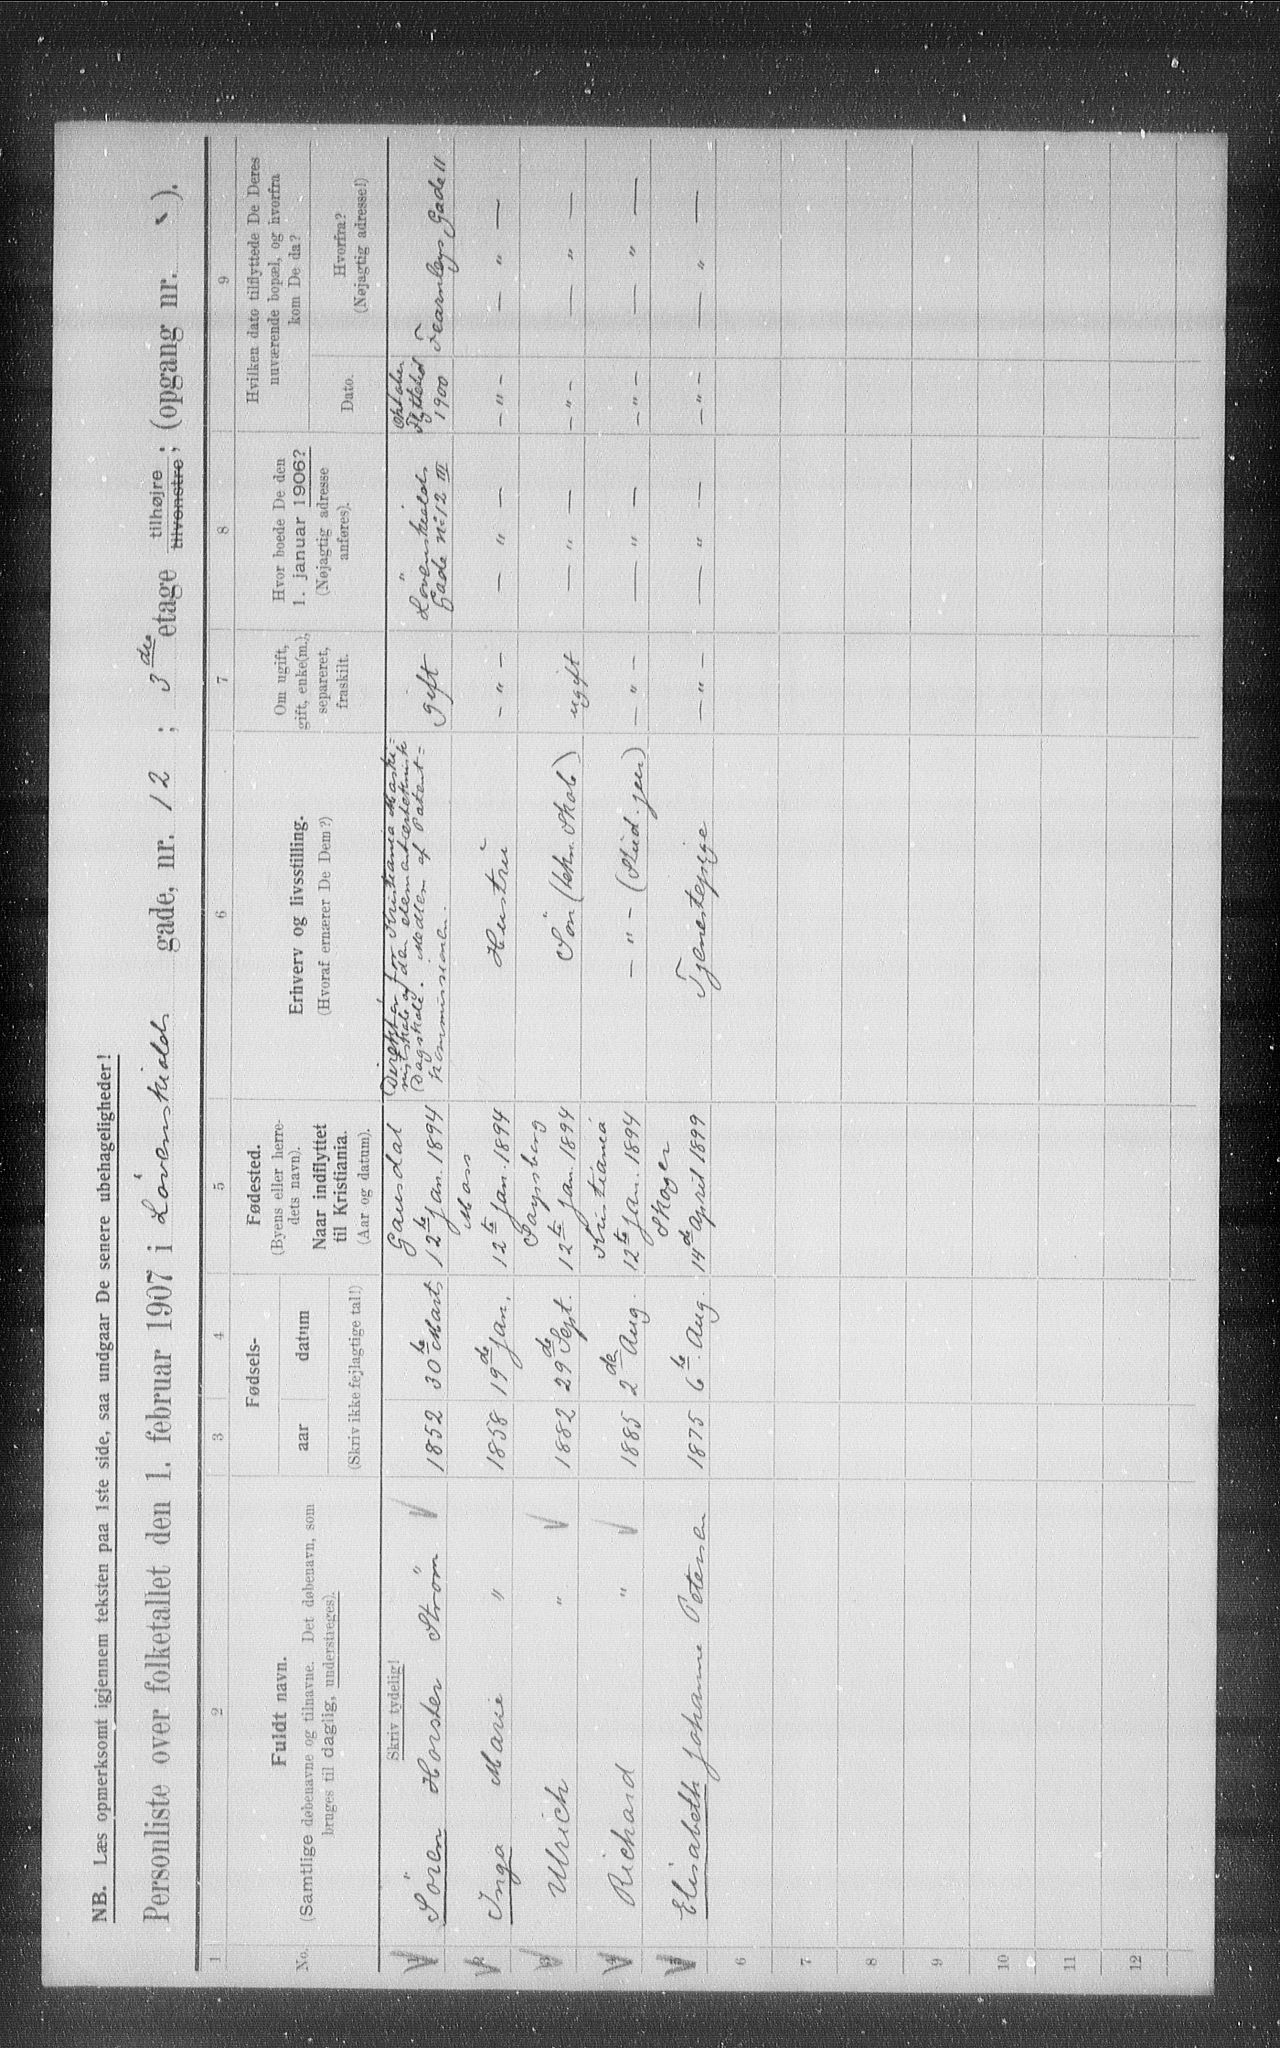 NB. Læs opmerksomt igjennem teksten paa 1ste side, saa undgaar De senere ubehageligheder!
Personliste over folketallet den 1. februar 1907 i Lövenskiolds gade, nr. 12 ; 3die etage tilhøjre ; tilvenstre ; (opgang nr. ).
1 2 3 4 5 6 7 8 9
No.
Fuldt navn.
(Samtlige døbenavne og tilnavne. Det døbenavn, som
bruges til daglig, understreges).
Fødsels-
aar datum
(Skriv ikke fejlagtige tal!)
Fødested.
(Byens eller herre-
dets navn).
Naar indflyttet
til Kristiania.
(Aar og datum).
Erhverv og livsstilling.
(Hvoraf ernærer De Dem?)
Om ugift,
gift, enke(m.),
separeret,
fraskilt.
Hvor boede De den
1. januar 1906?
(Nøjagtig adresse
anføres).
Hvilken dato tilflyttede De Deres
nuværende bopæl, og hvorfra
kom De da?
Dato.
Hvorfra?
(Nøjagtig adresse!)
Skriv tydelig!
1 Sören Horster Ström 1852 30te Marts
Gausdal
12te Jan. 1894
Direktör for Kristiania Maski=
nistskole og den elementærtekniske
Dagskole. Medlem af Patent=
kommissionen.
gift
Lövenskiolds
Gade No 12 III
Oktober
Flyttetid
1900
Fearnleys Gade 11
2 Inga Marie " 1858 19de Jan.
Moss
12te Jan. 1894
Hustru - " - — " — - " - — " —
3 Ulrich " 1882 29de Sept.
12te Jan. 1894
Sön (tekn. Skole) ugift — " — - " - — " —
4 Richard " 1885 2den Aug.
Kristiania
12te Jan. 1894
- " - (Stud. jur) - " - — " — - " - — " —
5 Elisabeth Johanne Petersen 1875 6te Aug.
Skoger
14de April 1899
Tjenestepige - " - — " — - " - — " —
6
7
8
9
10
11
12